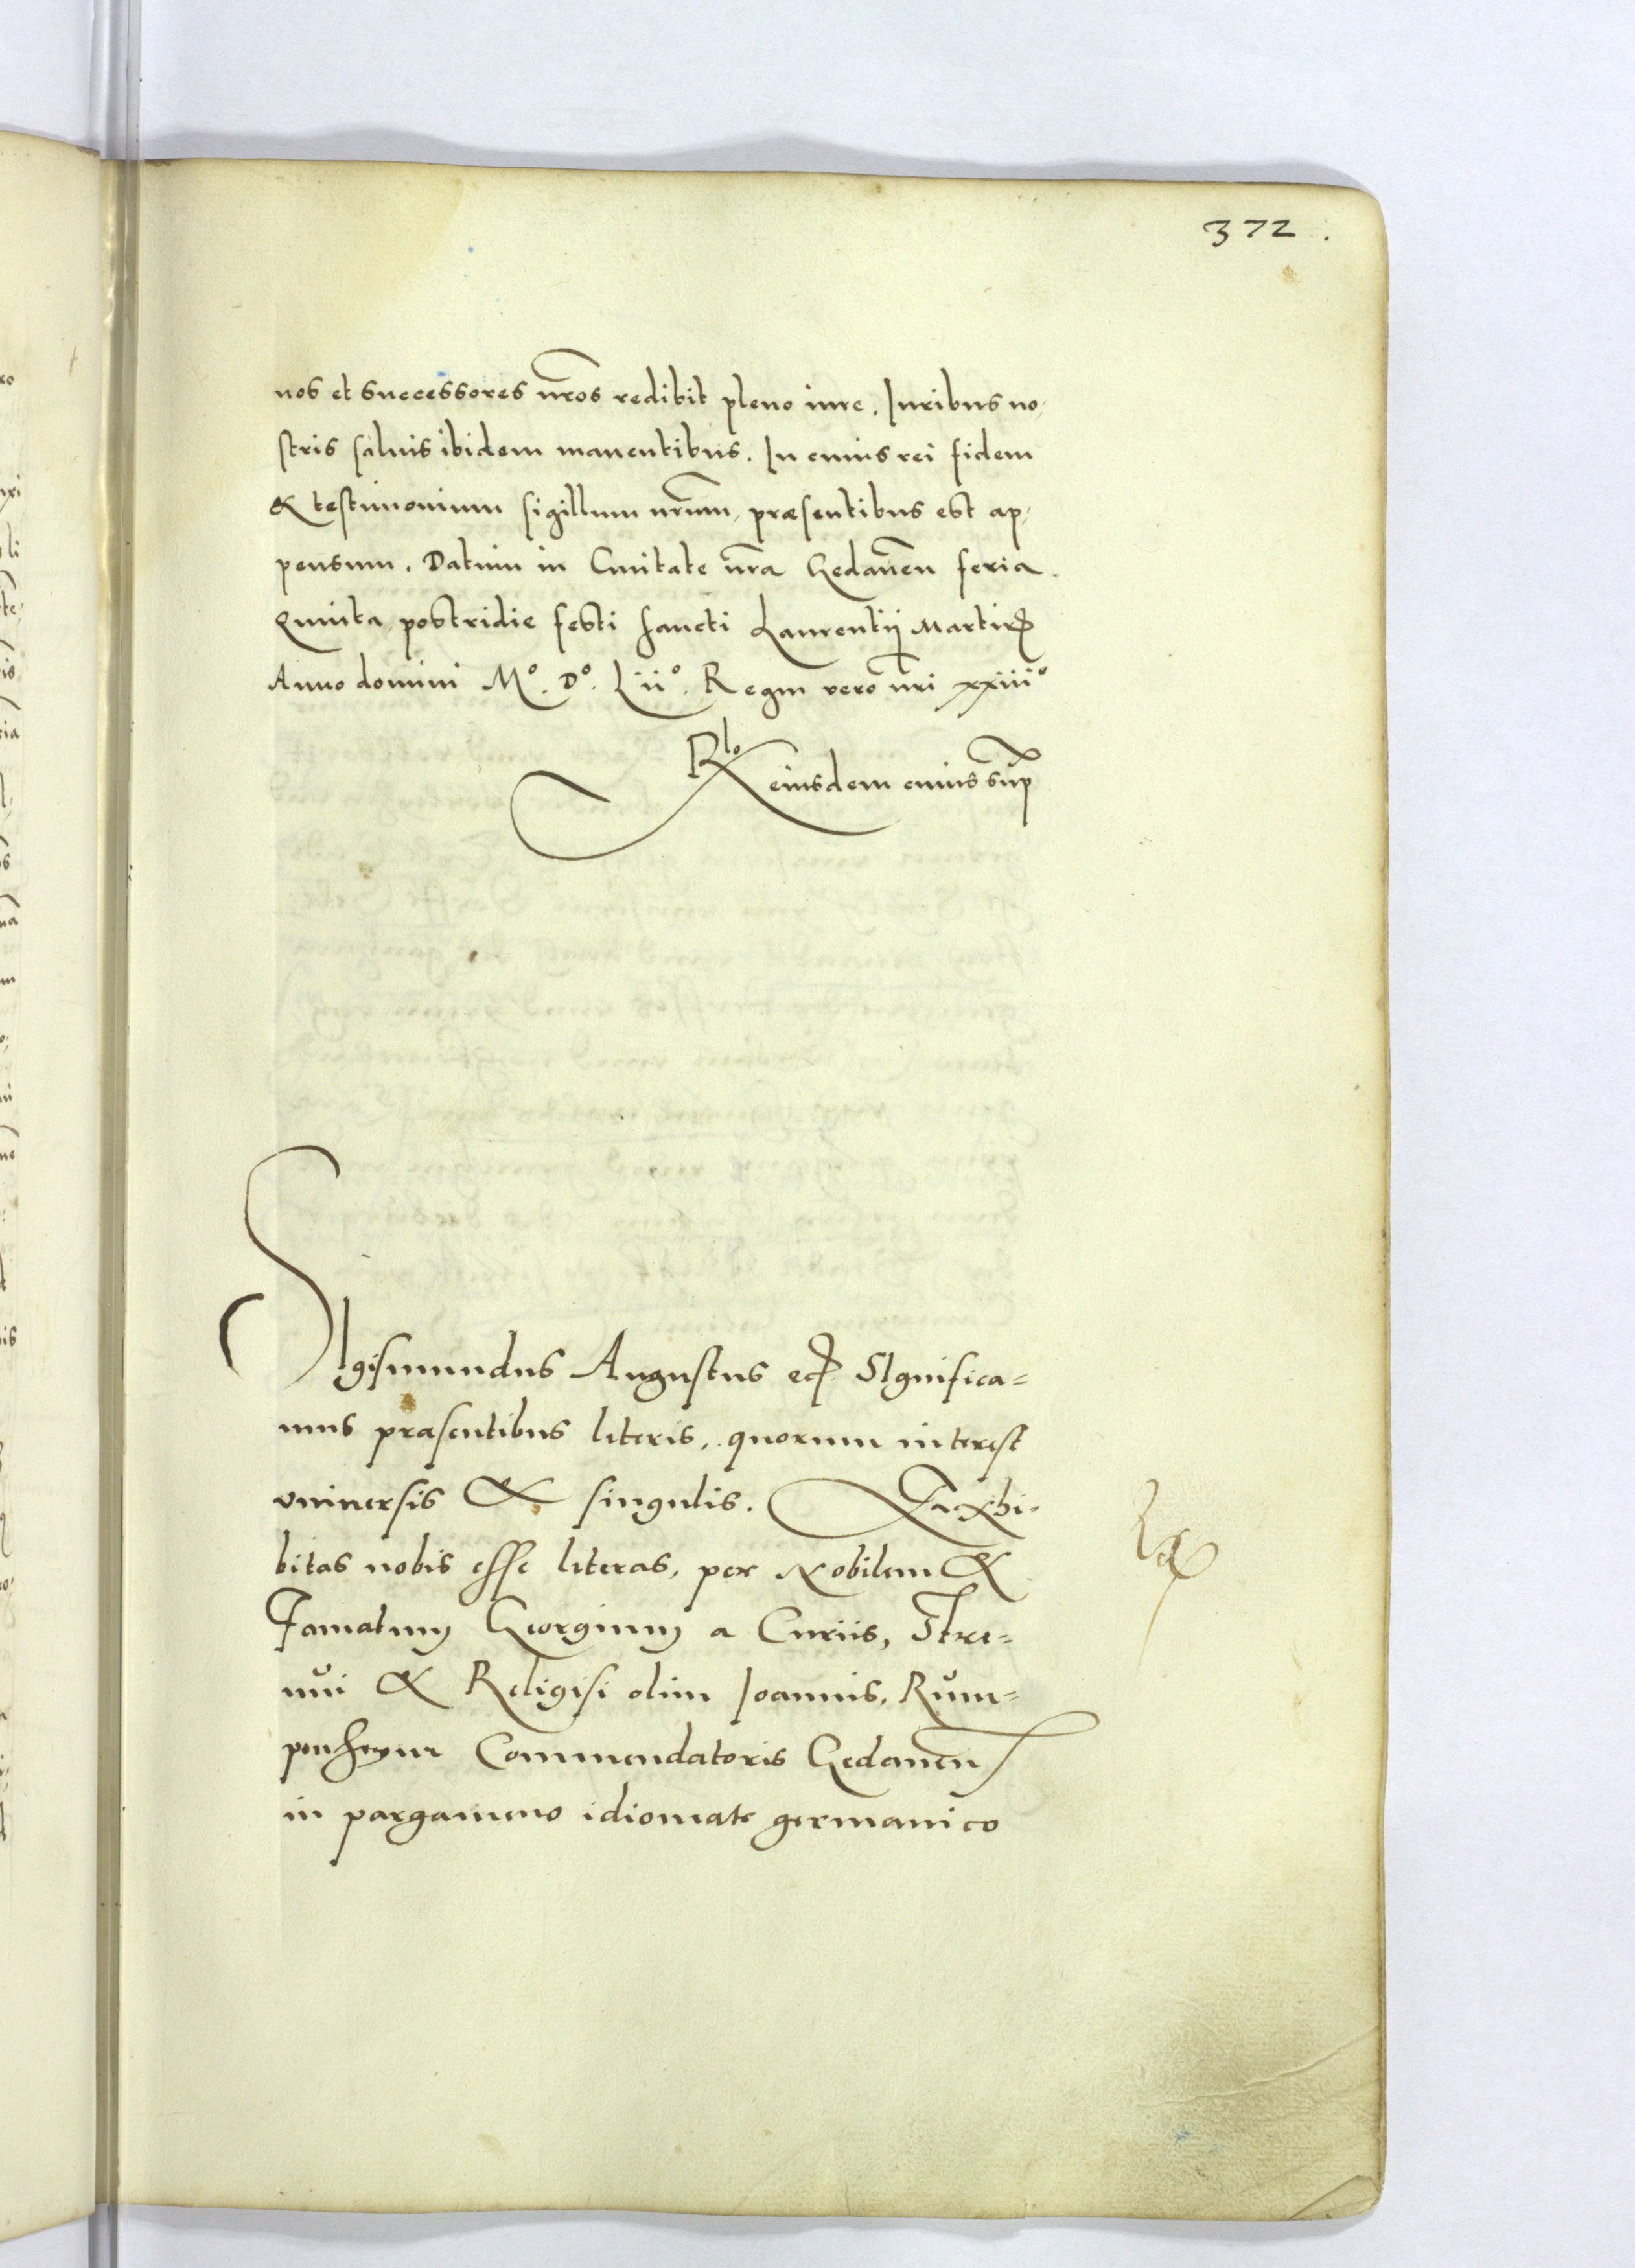 372.
nos et successores nr̃os redibit pleno iure. Iuribus no-
stris saluis ibidem manentibus. In cuius rei fidem
& testimonium sigillum nr̃um, præsentibus est ap-
pensum. Datum in Ciuitate nr̃a Gedaneñ feria
Quinta postridie festi sancti Laurentij Martiris
Anno domini Mº. Dº. Liiº. Regni vero nr̃i xxiiiº
Rlo eiusdem cuius sup̃
SIgismundus Augustus etc̃ SIgnifica=
mus præsentibus literis, quorum interest
vniuersis & singulis. Exhi-
bitas nobis esse literas, per Nobilem &
Famatum Georgium a Curiis, Stre=
nŭi & Religisi olim Ioannis, Rŭm=
Commendatoris Gedaneñ
in pargameno idiomate germanico